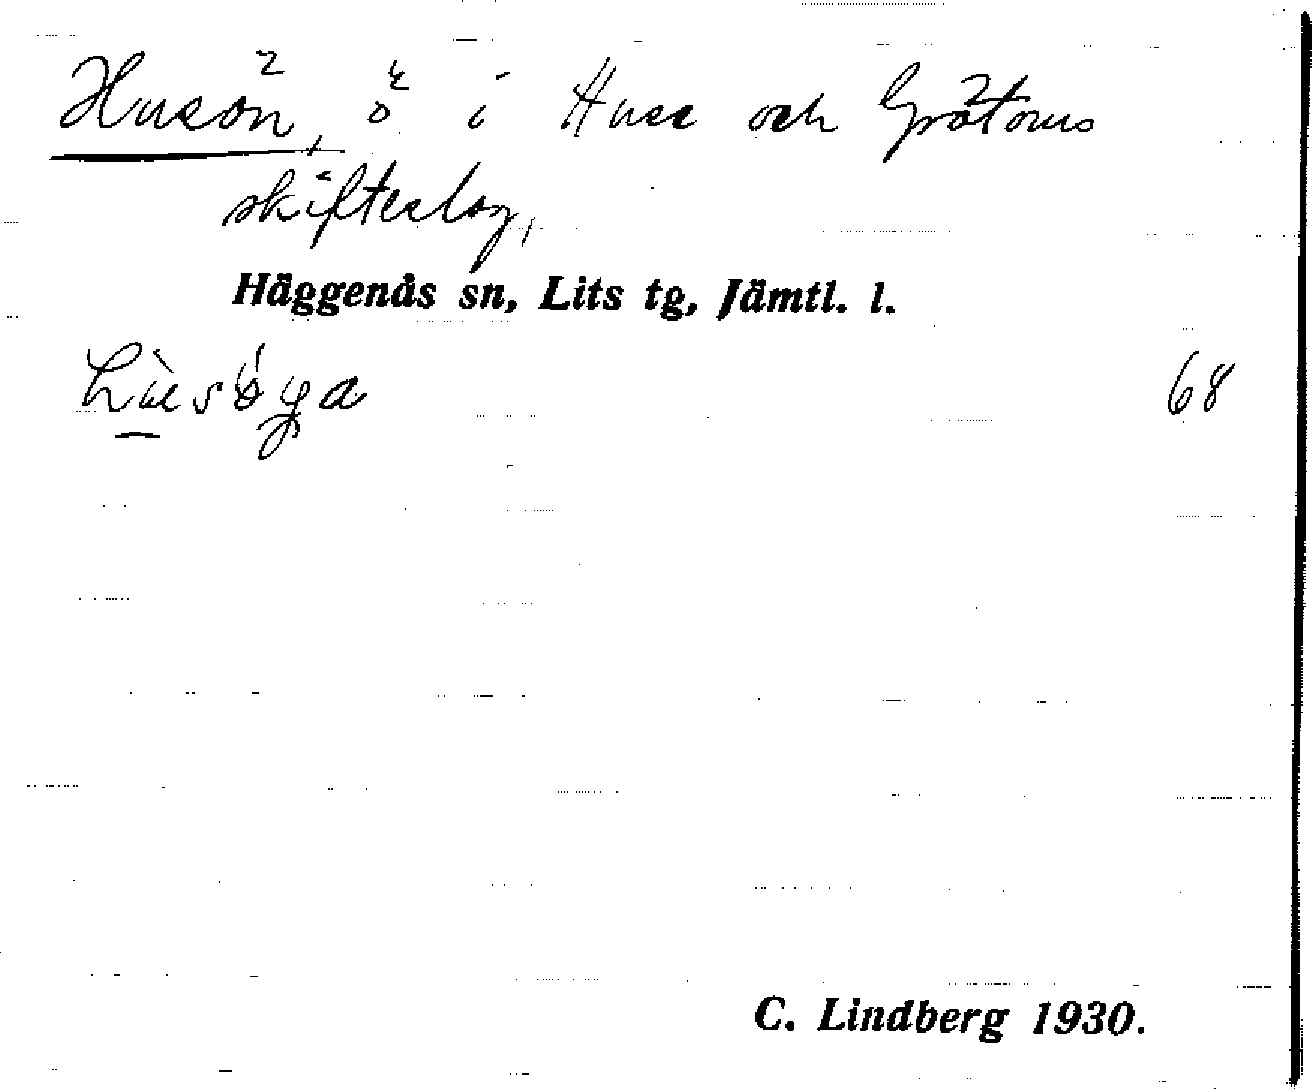 Husön, ö i Huse och Gråtåns
skifteslag,
Häggenås sn, Lits tg, Jämtl. l.
68
C. Lindberg 1930.